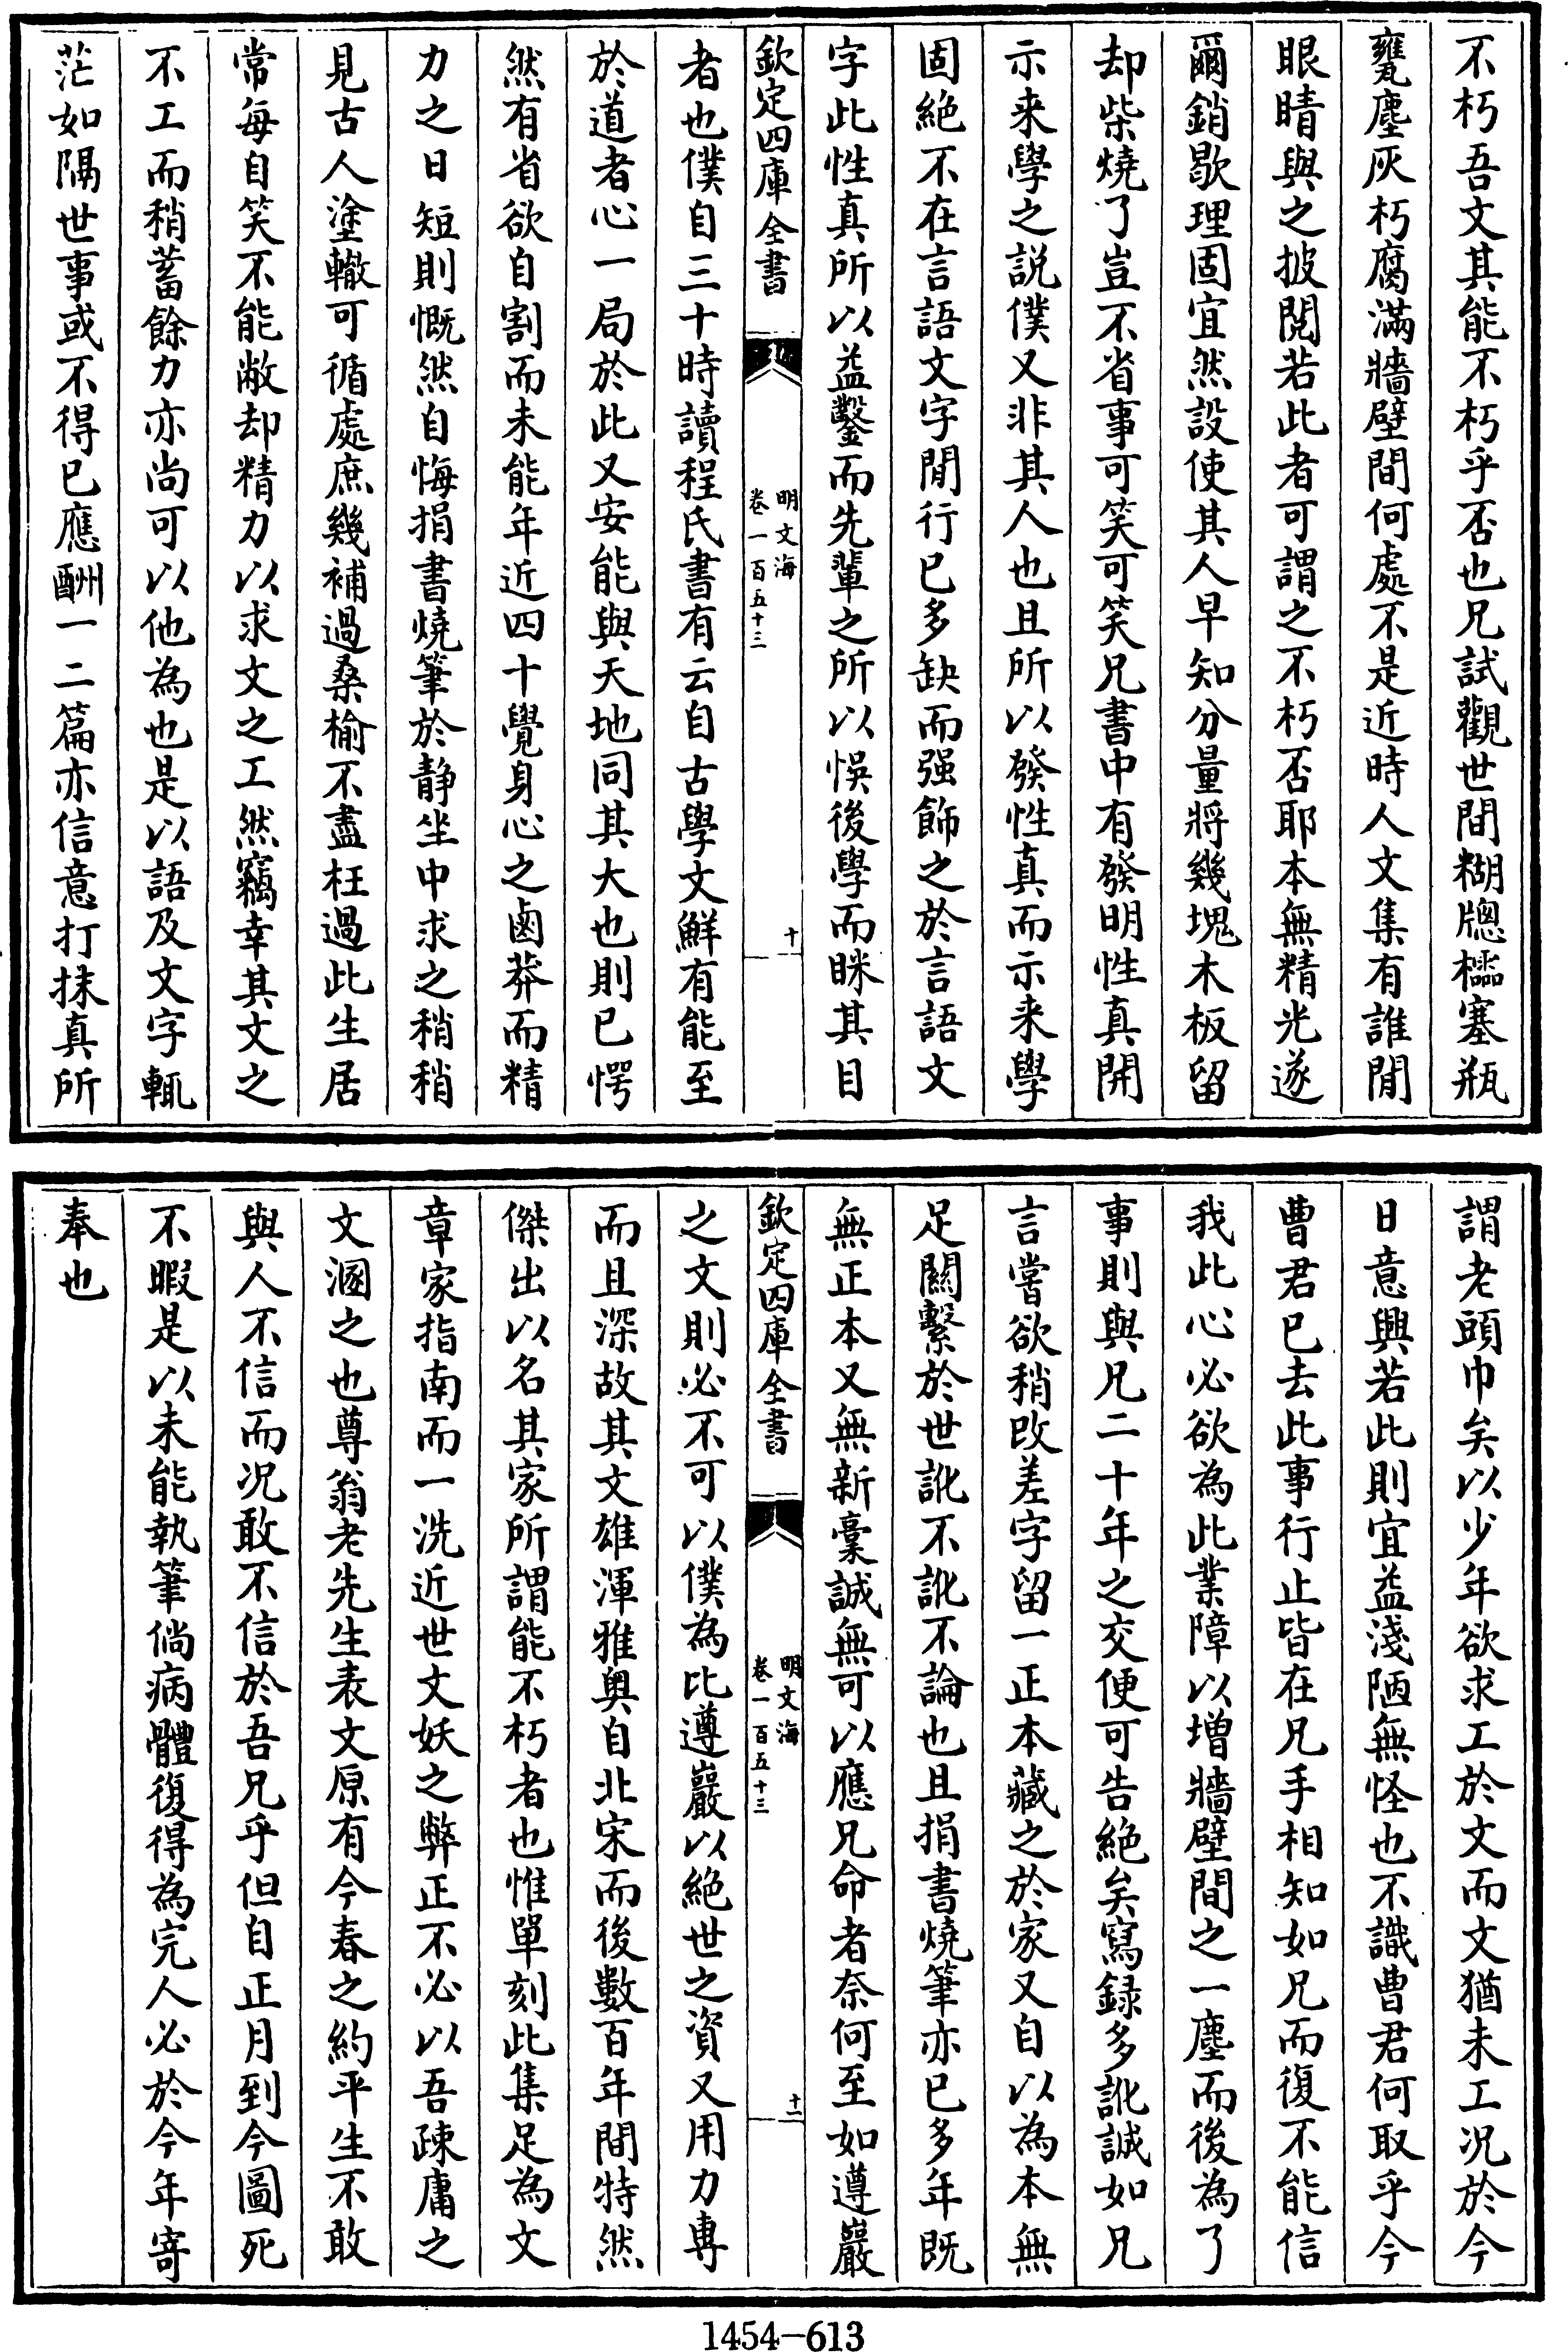 不朽吾文其能不朽乎否也兄試觀世間糊牕櫺塞瓶
甕塵灰朽腐滿牆壁間何處不是近時人文集有誰閒
眼睛與之披閱若此者可謂之不朽否耶本無精光遂
爾銷歇理固宜然設使其人早知分量將幾塊木板留
却柴燒了豈不省事可笑可笑兄書中有發明性真開
示来學之説僕又非其人也且所以發性真而示来學
固絶不在言語文字間行已多缺而强飾之於言語文
字此性真所以益鑿而先輩之所以悞後學而眯其目
欽定四庫全書
明文海
卷一百五十三
十
者也僕自三十時讀程氏書有云自古學文鮮有能至
於道者心一局於此又安能與天地同其大也則已愕
然有省欲自割而未能年近四十覺身心之鹵莽而精
力之日短則慨然自悔捐書燒筆於静坐中求之稍稍
見古人塗轍可循處庶幾補過桑榆不盡枉過此生居
常每自笑不能敝却精力以求文之工然竊幸其文之
不工而稍蓄餘力亦尚可以他為也是以語及文字輒
茫如隔世事或不得已應酬一二篇亦信意打抹真所
謂老頭巾矣以少年欲求工於文而文猶未工况於今
日意興若此則宜益淺陋無怪也不識曹君何取乎今
曹君已去此事行止皆在兄手相知如兄而復不能信
我此心必欲為此業障以增牆壁間之一塵而後為了
事則與兄二十年之交便可告絶矣寫録多訛誠如兄
言嘗欲稍改差字留一正本藏之於家又自以為本無
足關繫於世訛不訛不論也且捐書燒筆亦已多年既
無正本又無新稾誠無可以應兄命者奈何至如遵巖
欽定四庫全書
明文海
卷一百五十三
十一
之文則必不可以僕為比遵巖以絶世之資又用力専
而且深故其文雄渾雅奥自北宋而後數百年間特然
傑出以名其家所謂能不朽者也惟單刻此集足為文
章家指南而一洗近世文妖之弊正不必以吾疎庸之
文溷之也尊翁老先生表文原有今春之約平生不敢
與人不信而况敢不信於吾兄乎但自正月到今圖死
不暇是以未能執筆倘病體復得為完人必於今年寄
奉也
1454-613